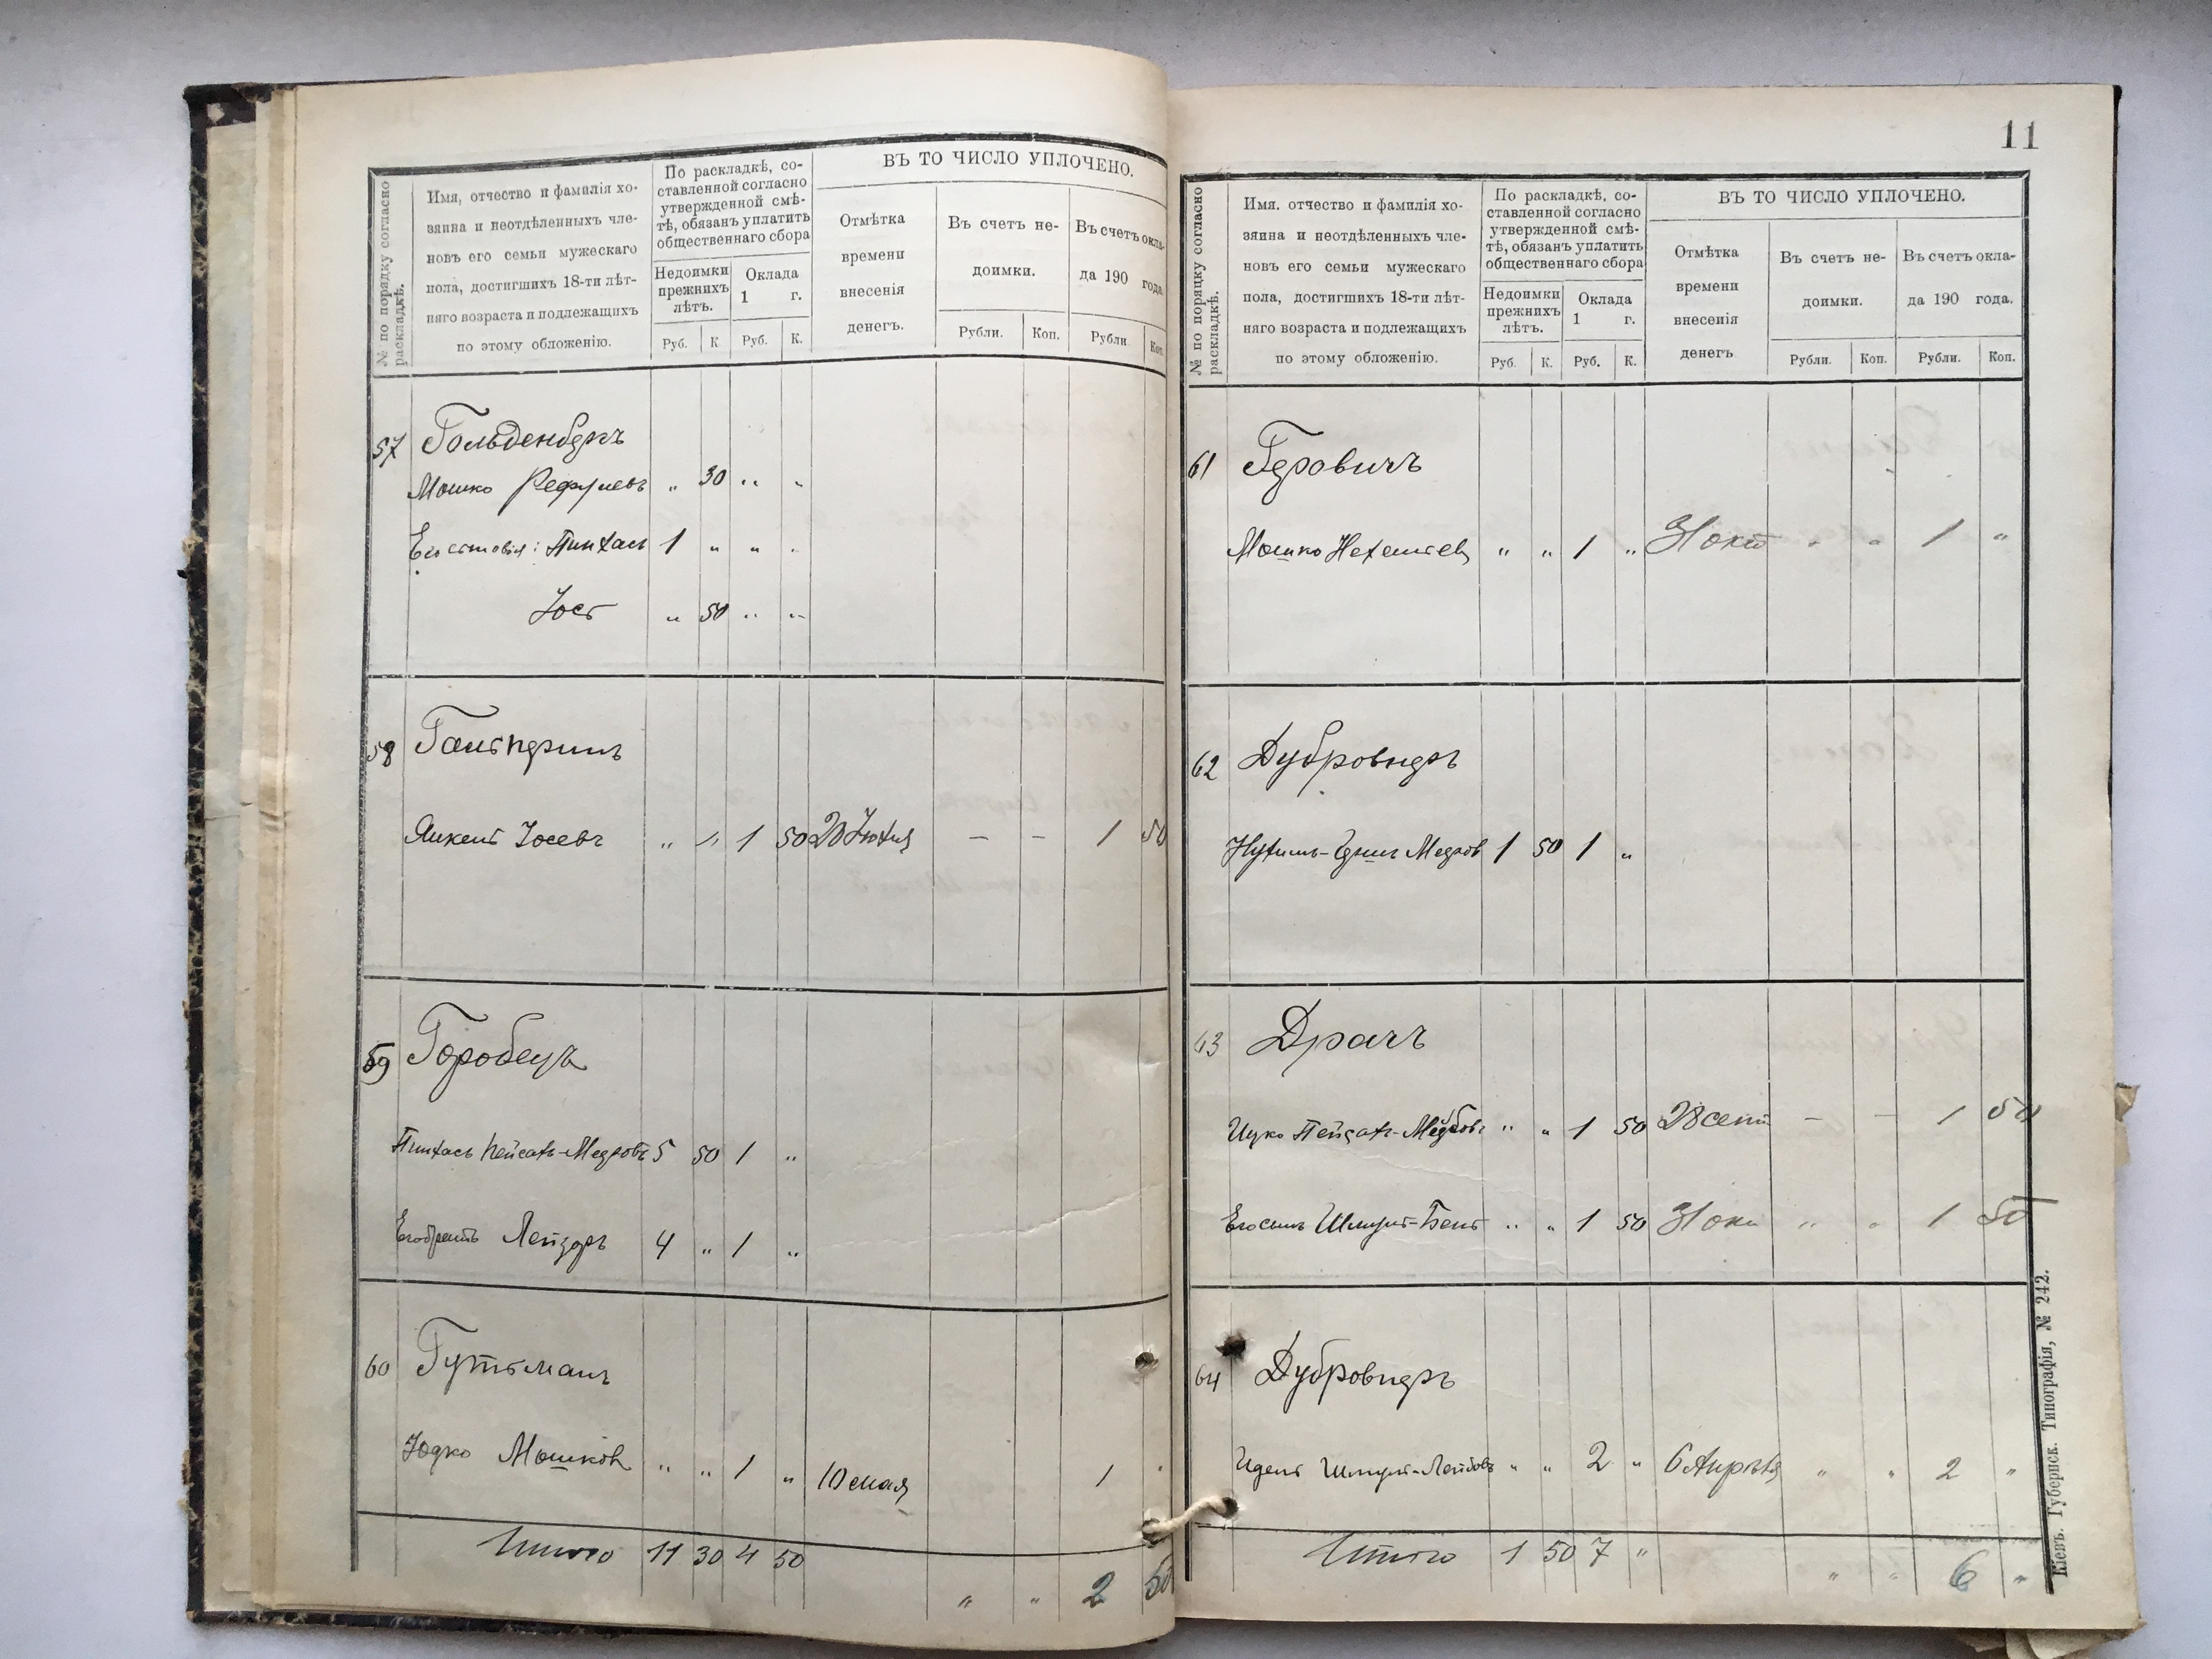 № по порядку согласно раскладкѣ.
Имя, отчество и фамилія хо-
зяина и неотдѣленныхъ чле-
новъ его семьи мужескаго
пола, достигшихъ 18-ти лѣт-
няго возраста и подлежащихъ
по этому обложенію.
По раскладкѣ, со-
ставленной согласно
утвержденной смѣ-
тѣ, обязанъ уплатить
общественнаго сбора
Недоимки
прежнихъ
лѣтъ.
Оклада
1 г.
Руб. К Руб. К.
ВЪ ТО ЧИСЛО УПЛОЧЕНО.
Отмѣтка
времени
внесенія
денегъ.
Въ счетъ не-
доимки.
Въ счетъ окла-
да 190 года
Рубли. Коп. Рубли Коп
57 Гольденберъ
Мошко „ 30 „ „
Его сыновья: Пинхасъ 1 „ „ „
Іось „ 50 „ „
58 Гальперинъ
Янкель Іосевъ „ „ 1 50 20 Іюля — — 1 50
59 Горобецъ
Пинхасъ Пейсахъ-Медровъ 5 50 1 „
Его братъ Лейзоръ 4 „ 1 „
60 Гутманъ
Юдко Мошков „ „ 1 „ 10 мая 1 „
Итого 11 30 4 50
„ „ 2 50
11
№ по порядку согласно раскладкѣ.
Имя. отчество и фамилія хо-
зяина и неотдѣленныхъ чле-
новъ его семьи мужескаго
пола, достигшихъ 18-ти лѣт-
няго возраста и подлежащихъ
по этому обложенію.
По раскладкѣ, со-
ставленной согласно
утвержденной смѣ-
тѣ, обязанъ уплатить
общественнаго сбора
Недоимки
прежнихъ
лѣтъ.
Оклада
1 г.
Руб. К. Руб. К.
ВЪ ТО ЧИСЛО УПЛОЧЕНО.
Отмѣтка
времени
внесенія
денегъ
Въ счетъ не-
доимки.
Въ счетъ окла-
да 190 года.
Рубли. Коп. Рубли. Коп.
61 Геровичъ
Мошко Нехеміев „ „ 1 „ 31 окт „ „ 1 „
62 Дубровнеръ
1 50 1 „
63 Драчъ
Ицко „ „ 1 50 28 сент — — 1 50
Его сынъ Шмуль-Бень „ „ 1 50 31 ок „ „ 1 50
64 Дубровнеръ
Идель Шмуль-Лейбовъ „ „ 2 „ 6 Апрѣля „ „ 2 „
Итого 1 50 7 „
„ „ 6 „
Кіевъ. Губернск. Типографія, № 242.